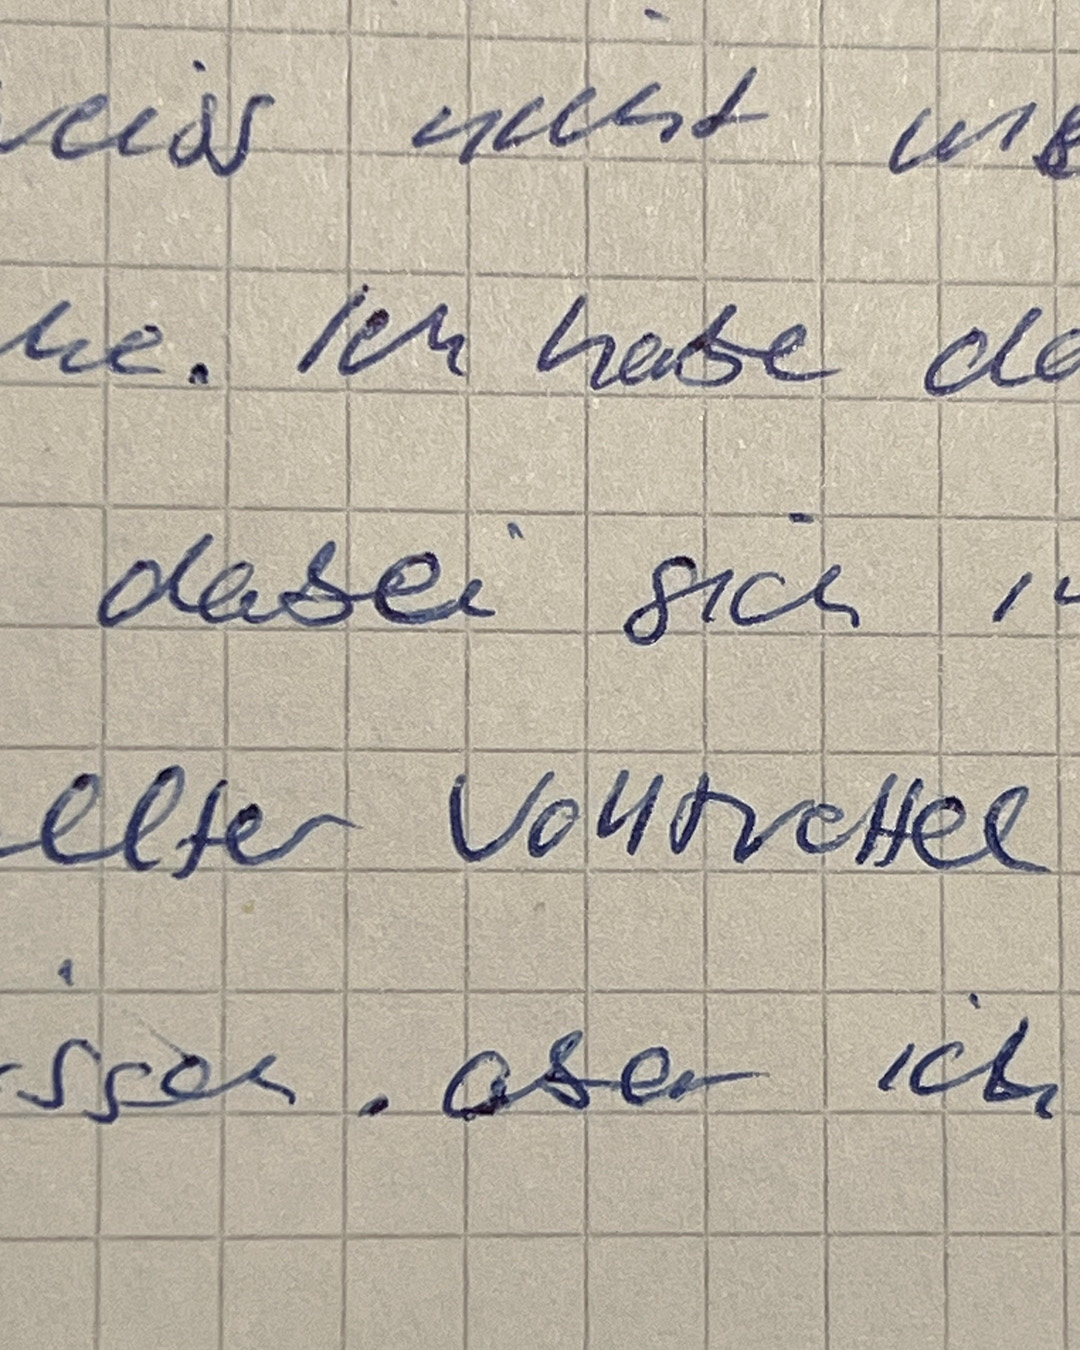 weiss nicht was
he. Ich habe da
dabei sich in
ellter Volltrottel
issen. aber ich